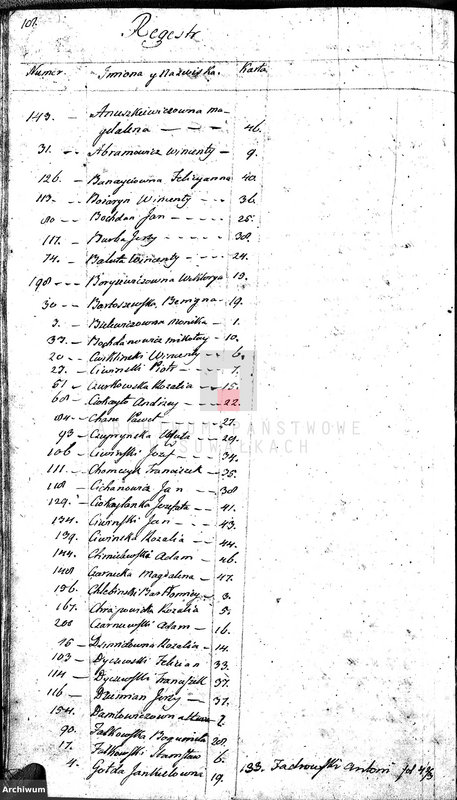 102.
Regestr
Numer Imiona y Nazwiska. Karta
143. Anuszkiewiczowna Ma-
gdalena 46.
31. Abramowicz Wincenty 9.
126. Felixyanna 40.
113. Bojaryn Wincenty 36.
80 Bochdan Jan 25.
117. Burba Jerzy 38.
74. Baluta Wincenty 24.
198 Borysewiczowna Wiktorya 19.
30 Bartoszewska Benigna 19.
3. Monika 1.
37. Bochdanowicz Mikołay 10.
20 Cwikliński Wincenty 6.
27. Ciwinski Piotr 7.
51 Czurkowska Rozalia 15.
68 Andrzey 22.
84 Paweł 27.
93 Czuprynska Urszula 29.
106 Ciwinski Jozef 34.
111. Chomczyk Franciszek 35.
118 Cichanowicz Jan 38
129. Jozefata 41.
134. Ciwinski Jan 43.
139. Ciwinska Rozalia 44.
144. Chmielewski Adam 46.
148 Czarnecka Magdalena 47.
156. Chlebinski Bartłomiey 3.
167. Rozalia 5.
200 Czarnewski Adam 16.
16 Dzmidowna Rozalia 14.
103 Dyczewski Felixian 33.
114 Dyczewski Franciszek 37.
116 Dzimian Jerzy 37.
154. Daniłowiczowna 2.
90. Falkowska Bogumiła 28.
17. Falkowski Stanisław 6.
4. Gołda Jankielowna 19. 133. Fadrowski Antoni
ARCHIWUM PAŃSTWOWE
W SUWAŁKACH
Archiwum